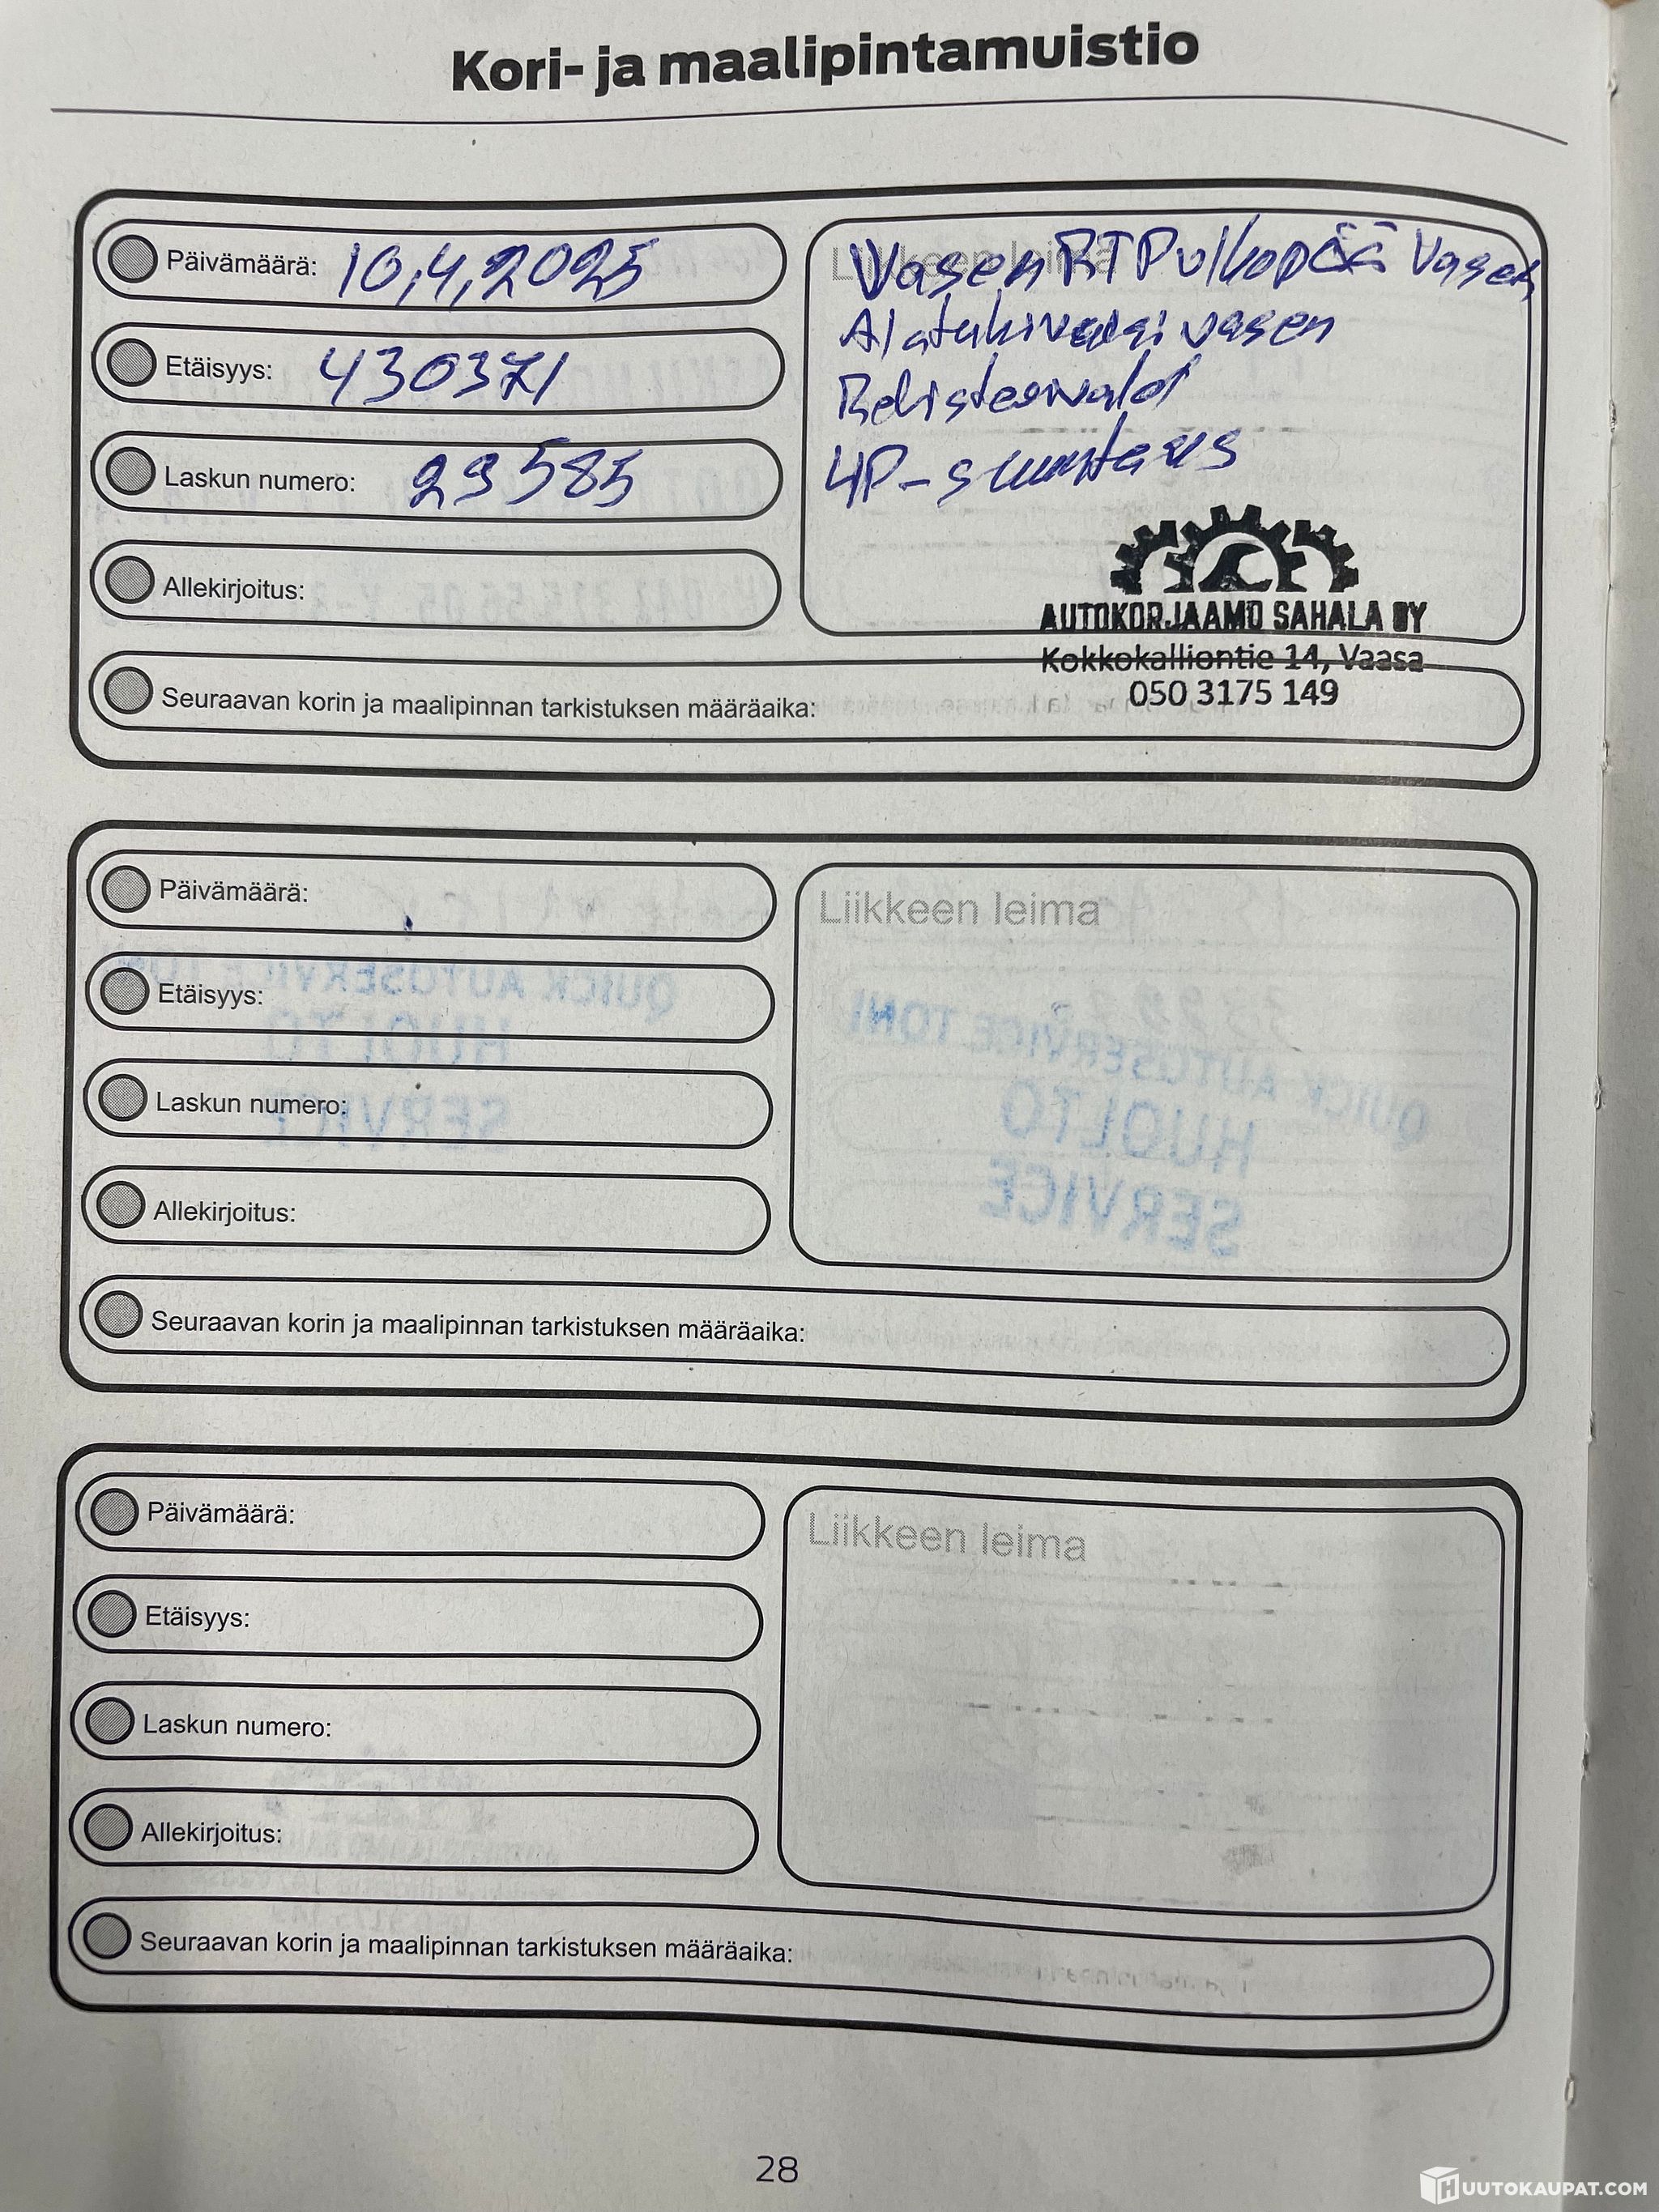 Kori- ja maalipintamuistio
Päivämäärä: 10,4,2025
Vasen RT Pulkopää Vasen
Etäisyys: 430371
Alatukivarsi vasen
Rekisterivalot
Laskun numero: 29585
4P-suuntaus
Allekirjoitus:
AUTOKORJAAMO SAHALA OY
Kokkokalliontie 14, Vaasa
050 3175 149
Seuraavan korin ja maalipinnan tarkistuksen määräaika:
Päivämäärä:
Liikkeen leima
Etäisyys:
Laskun numero:
Allekirjoitus:
QUICK AUTOSERVICE TONI
HUOLTO
SERVICE
QUICK AUTOSERVICE TONI
HUOLTO
SERVICE
Seuraavan korin ja maalipinnan tarkistuksen määräaika:
Päivämäärä:
Liikkeen leima
Etäisyys:
Laskun numero:
Allekirjoitus:
Seuraavan korin ja maalipinnan tarkistuksen määräaika:
28
HUUTOKAUPAT.COM